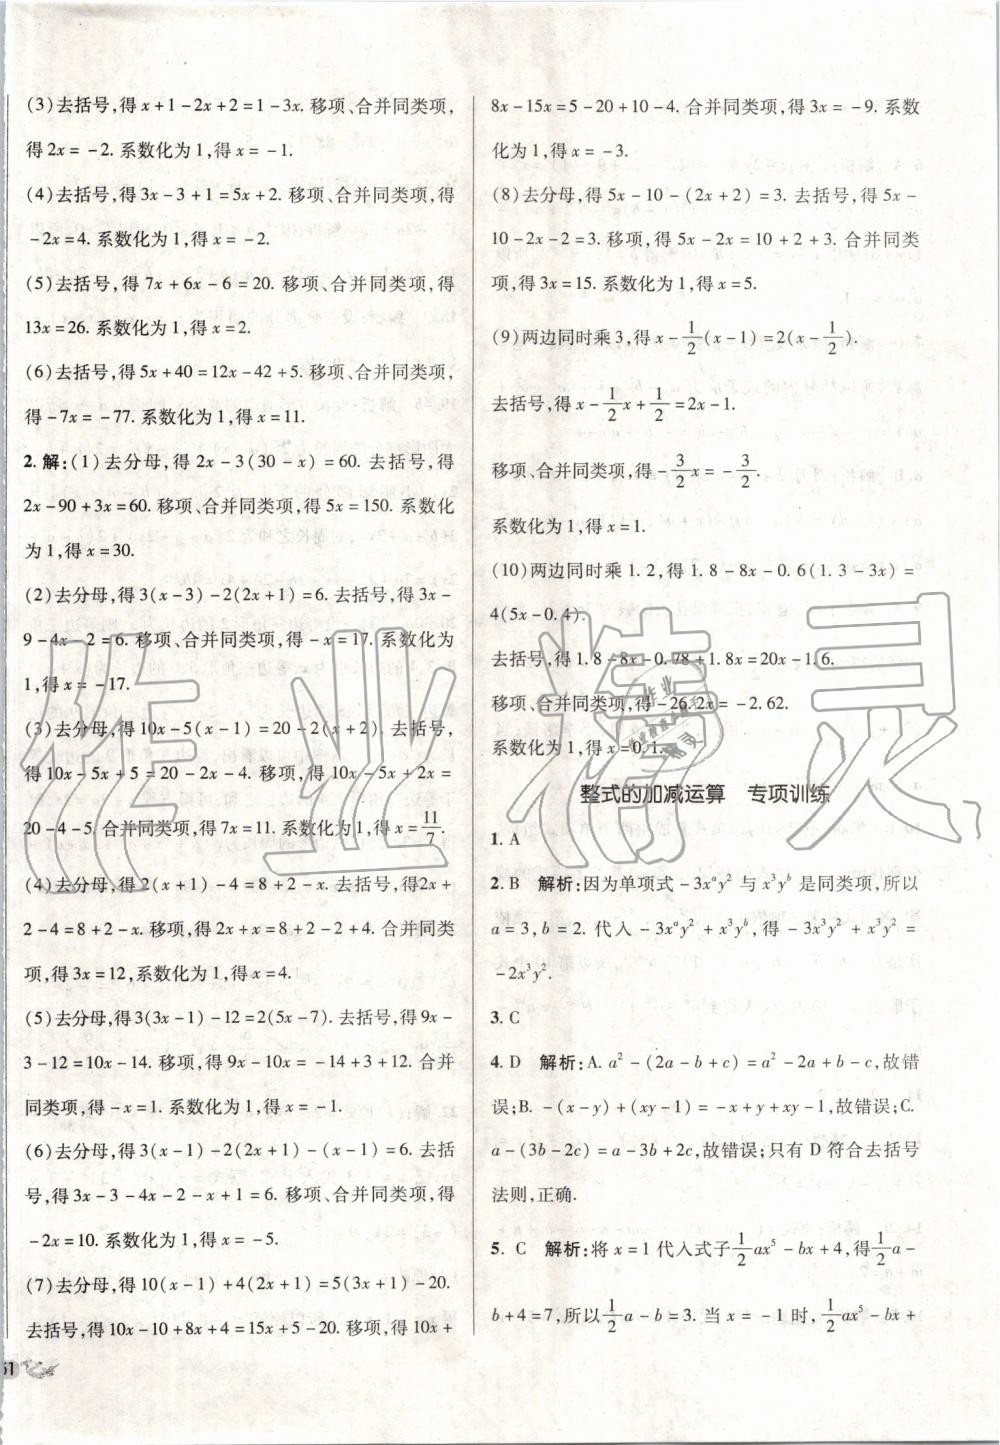 (3)去括号,得 x+1-2x+2=1-3x. 移项、合并同类项,
得 2x=-2. 系数化为 1,得 x=-1.
(4)去括号,得 3x-3+1=5x+2. 移项、合并同类项,得
-2x=4. 系数化为 1,得 x=-2.
(5)去括号,得 7x+6x-6=20. 移项、合并同类项,得
13x=26. 系数化为 1,得 x=2.
(6)去括号,得 5x+40=12x-42+5. 移项、合并同类项,
得-7x=-77. 系数化为 1,得 x=11.
2.解:(1)去分母,得 2x-3(30-x)=60. 去括号,得
2x-90+3x=60. 移项、合并同类项,得 5x=150. 系数化
为 1,得 x=30.
(2)去分母,得 3(x-3)-2(2x+1)=6. 去括号,得 3x-
9-4x-2=6. 移项、合并同类项,得-x=17. 系数化为
1,得 x=-17.
(3)去分母,得 10x-5(x-1)=20-2(x+2). 去括号,
得 10x-5x+5=20-2x-4. 移项,得 10x-5x+2x=
20-4-5. 合并同类项,得 7x=11. 系数化为 1,得 x=11/7.
(4)去分母,得 2(x+1)-4=8+2-x. 去括号,得2x+
2-4=8+2-x. 移项,得 2x+x=8+2-2+4. 合并同类
项,得 3x=12,系数化为 1,得 x=4.
(5)去分母,得 3(3x-1)-12=2(5x-7). 去括号,得 9x-
3-12=10x-14. 移项,得 9x-10x=-14+3+12. 合并
同类项,得-x=1. 系数化为 1,得 x=-1.
(6)去分母,得 3(x-1)-2(2x+1)-(x-1)=6. 去括
号,得 3x-3-4x-2-x+1=6. 移项、合并同类项,得
-2x=10. 系数化为 1,得 x=-5.
(7)去分母,得 10(x-1)+4(2x+1)=5(3x+1)-20.
去括号,得 10x-10+8x+4=15x+5-20. 移项,得 10x+
51
8x-15x=5-20+10-4. 合并同类项,得 3x=-9. 系数
化为 1,得 x=-3.
(8)去分母,得 5x-10-(2x+2)=3. 去括号,得 5x-
10-2x-2=3. 移项,得 5x-2x=10+2+3. 合并同类
项,得 3x=15. 系数化为 1,得 x=5.
(9)两边同时乘 3,得 x-1/2(x-1)=2(x-1/2).
去括号,得 x-1/2x+1/2=2x-1.
移项、合并同类项,得-3/2x=-3/2.
系数化为 1,得 x=1.
(10)两边同时乘 1.2,得 1.8-8x-0.6(1.3-3x)=
4(5x-0.4).
去括号,得 1.8-8x-0.78+1.8x=20x-1.6.
移项、合并同类项,得-26.2x=-2.62.
系数化为 1,得 x=0.1.
整式的加减运算 专项训练
1. A
2. B 解析:因为单项式-3xᵃy² 与 x³yᵇ 是同类项,所以
a=3,b=2. 代入-3xᵃy²+x³yᵇ,得-3x³y²+x³y²=
-2x³y².
3. C
4. D 解析:A. a²-(2a-b+c)=a²-2a+b-c,故错
误;B. -(x-y)+(xy-1)=-x+y+xy-1,故错误;C.
a-(3b-2c)=a-3b+2c,故错误;只有 D 符合去括号
法则,正确.
5. C 解析:将 x=1 代入式子1/2ax⁵-bx+4,得1/2a-
b+4=7,所以1/2a-b=3. 当 x=-1 时,1/2ax⁵-bx+
作业精灵